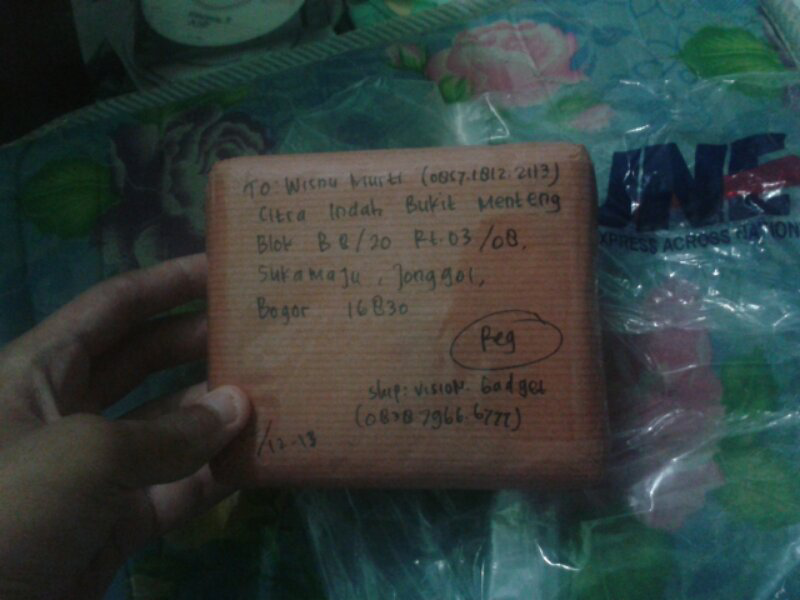 TO: Wisnu Murti (0857.1812.2113)
Citra Indah Bukit Menteng
Blok B8/20 Rt.03/08,
Sukamaju, Jonggol,
Bogor 16830
Reg
ship: vision. Gadget
(0838.7966.6777)
/12-13
JNE
EXPRESS ACROSS NATION